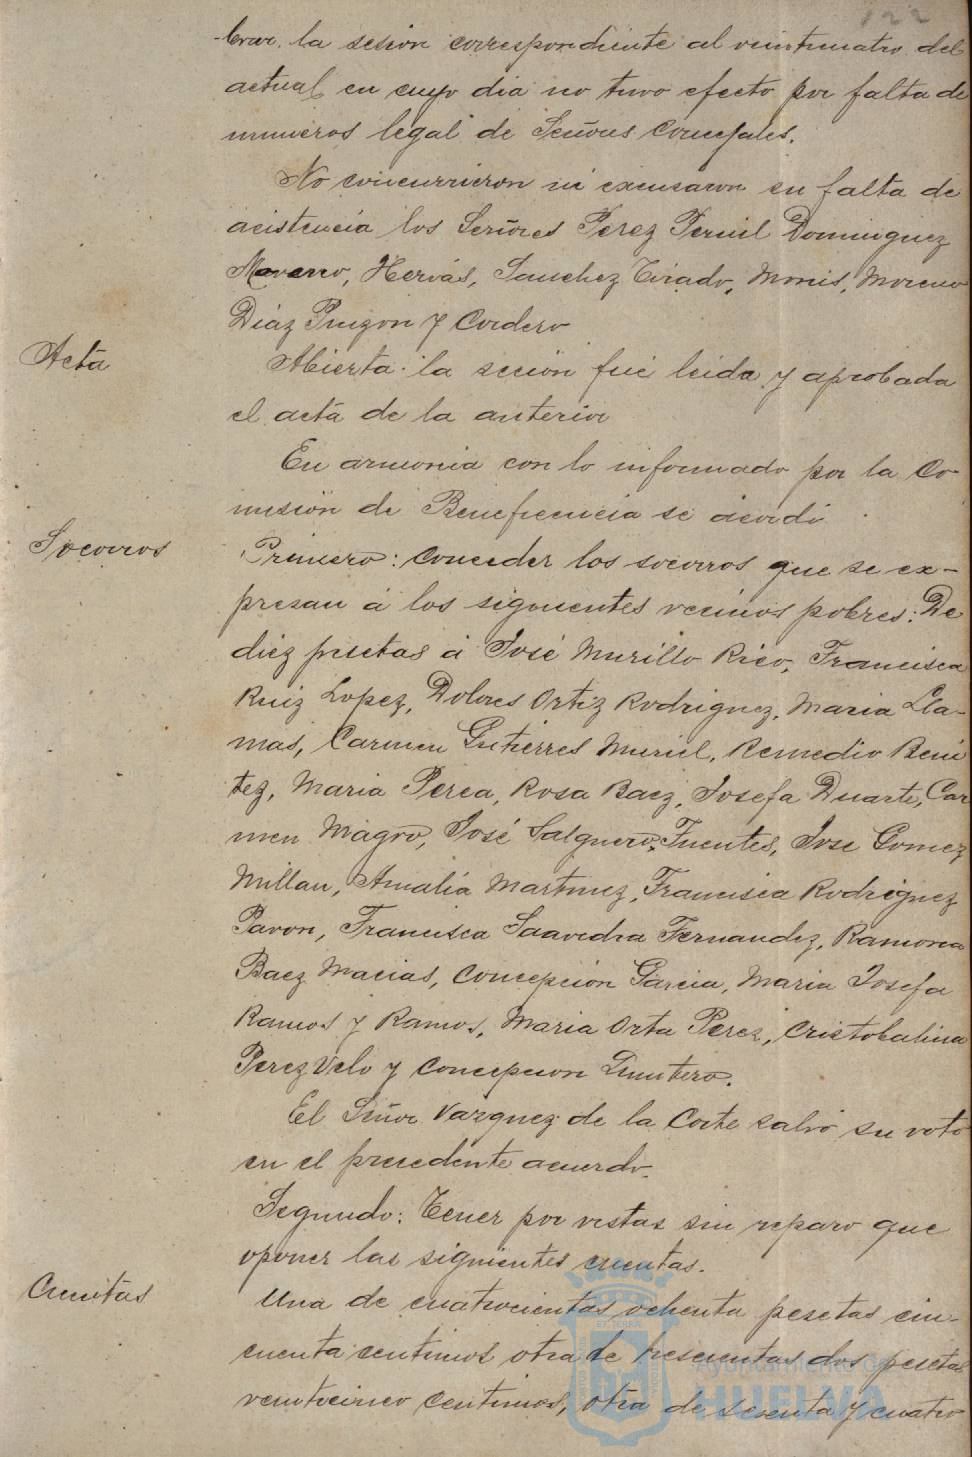 122
brar. la sesion correspondiente al veinticuatro del
actual en cuyo dia no tuvo efecto por falta de
numeros legal de Señores Concejales.
No concurrieron ni excusaron su falta de
acistencia los Señores Perez Pernil Dominguez
Navarro, Hervás, Sanchez Tirado, Monis, Moreno
Diaz Pinzon y Cordero
Acta
Abierta la secion fué leida y aprobada
el acta de la anterior
En armonia con lo informado por la Co-
mision de Beneficencia se acordó
Socorros
Primero: Conceder los socorros que se ex-
presan á los siguientes vecinos pobres: De
diez pesetas á José Murillo Rico, Francisca
Ruiz Lopez, Dolores Ortiz Rodriguez, Maria Lla-
mas, Carmen Gutierres Muriel, Remedio Beni
tez, Maria Perea, Rosa Baez, Josefa Duarte, Car
men Magro, José Salguero Fuentes, Jose Gomez
Millan, Amalia Martinez, Francisca Rodriguez
Pavon, Francisca Saavedra Fernandez, Ramona
Baez Macias, Concepcion Garcia, Maria Josefa
Ramos y Ramos, Maria Orta Perez, Cristobalina
Perez Velo y Concepcion Quintero.
El Señor Vazquez de la Corte salvó su voto
en el precedente acuerdo.
Segundo: Tener por vistas sin reparo que
oponer las siguientes cuentas.
Cuentas
Una de cuatrocientas ochenta pesetas cin-
cuenta centimos otra de trescientas dos pesetas
veinticinco centimos, otra de sesenta y cuatro
Ayuntamiento de
HUELVA